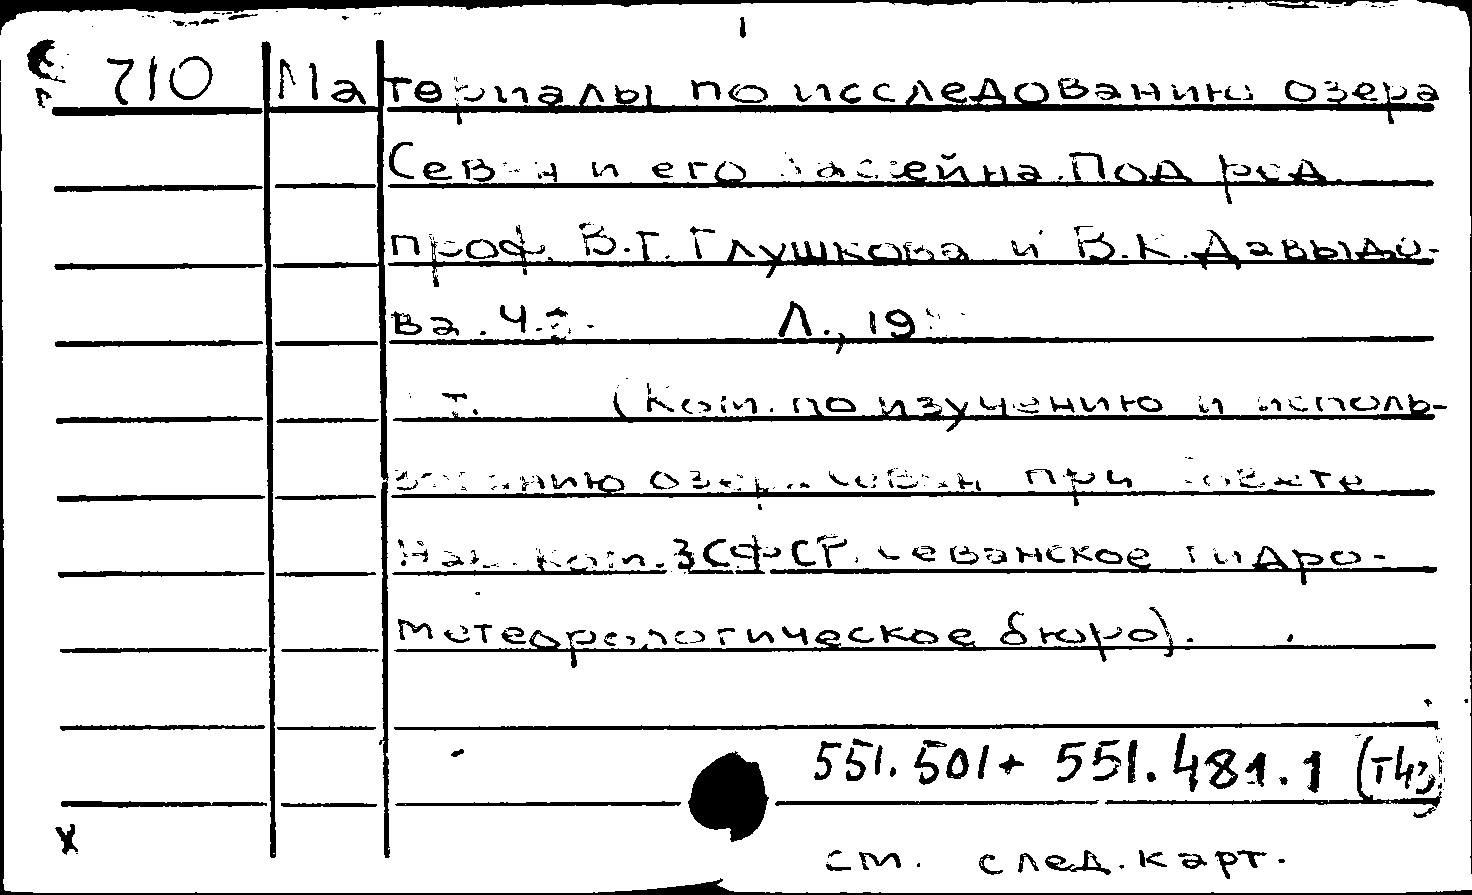 710 Материалы по исследованию озера
Севан и его бассейна. Под ред.
проф. В.Г. Глушкова и В.К. Давыдо-
ва. Ч. Л., 19
т. (Ком. по изучению и исполь-
зованию озера Севан при Совете
Нац. ком. ЗСФСР. Севанское гидро-
метеорологическое бюро).
551.501+ 551.481.1
см. след. карт.